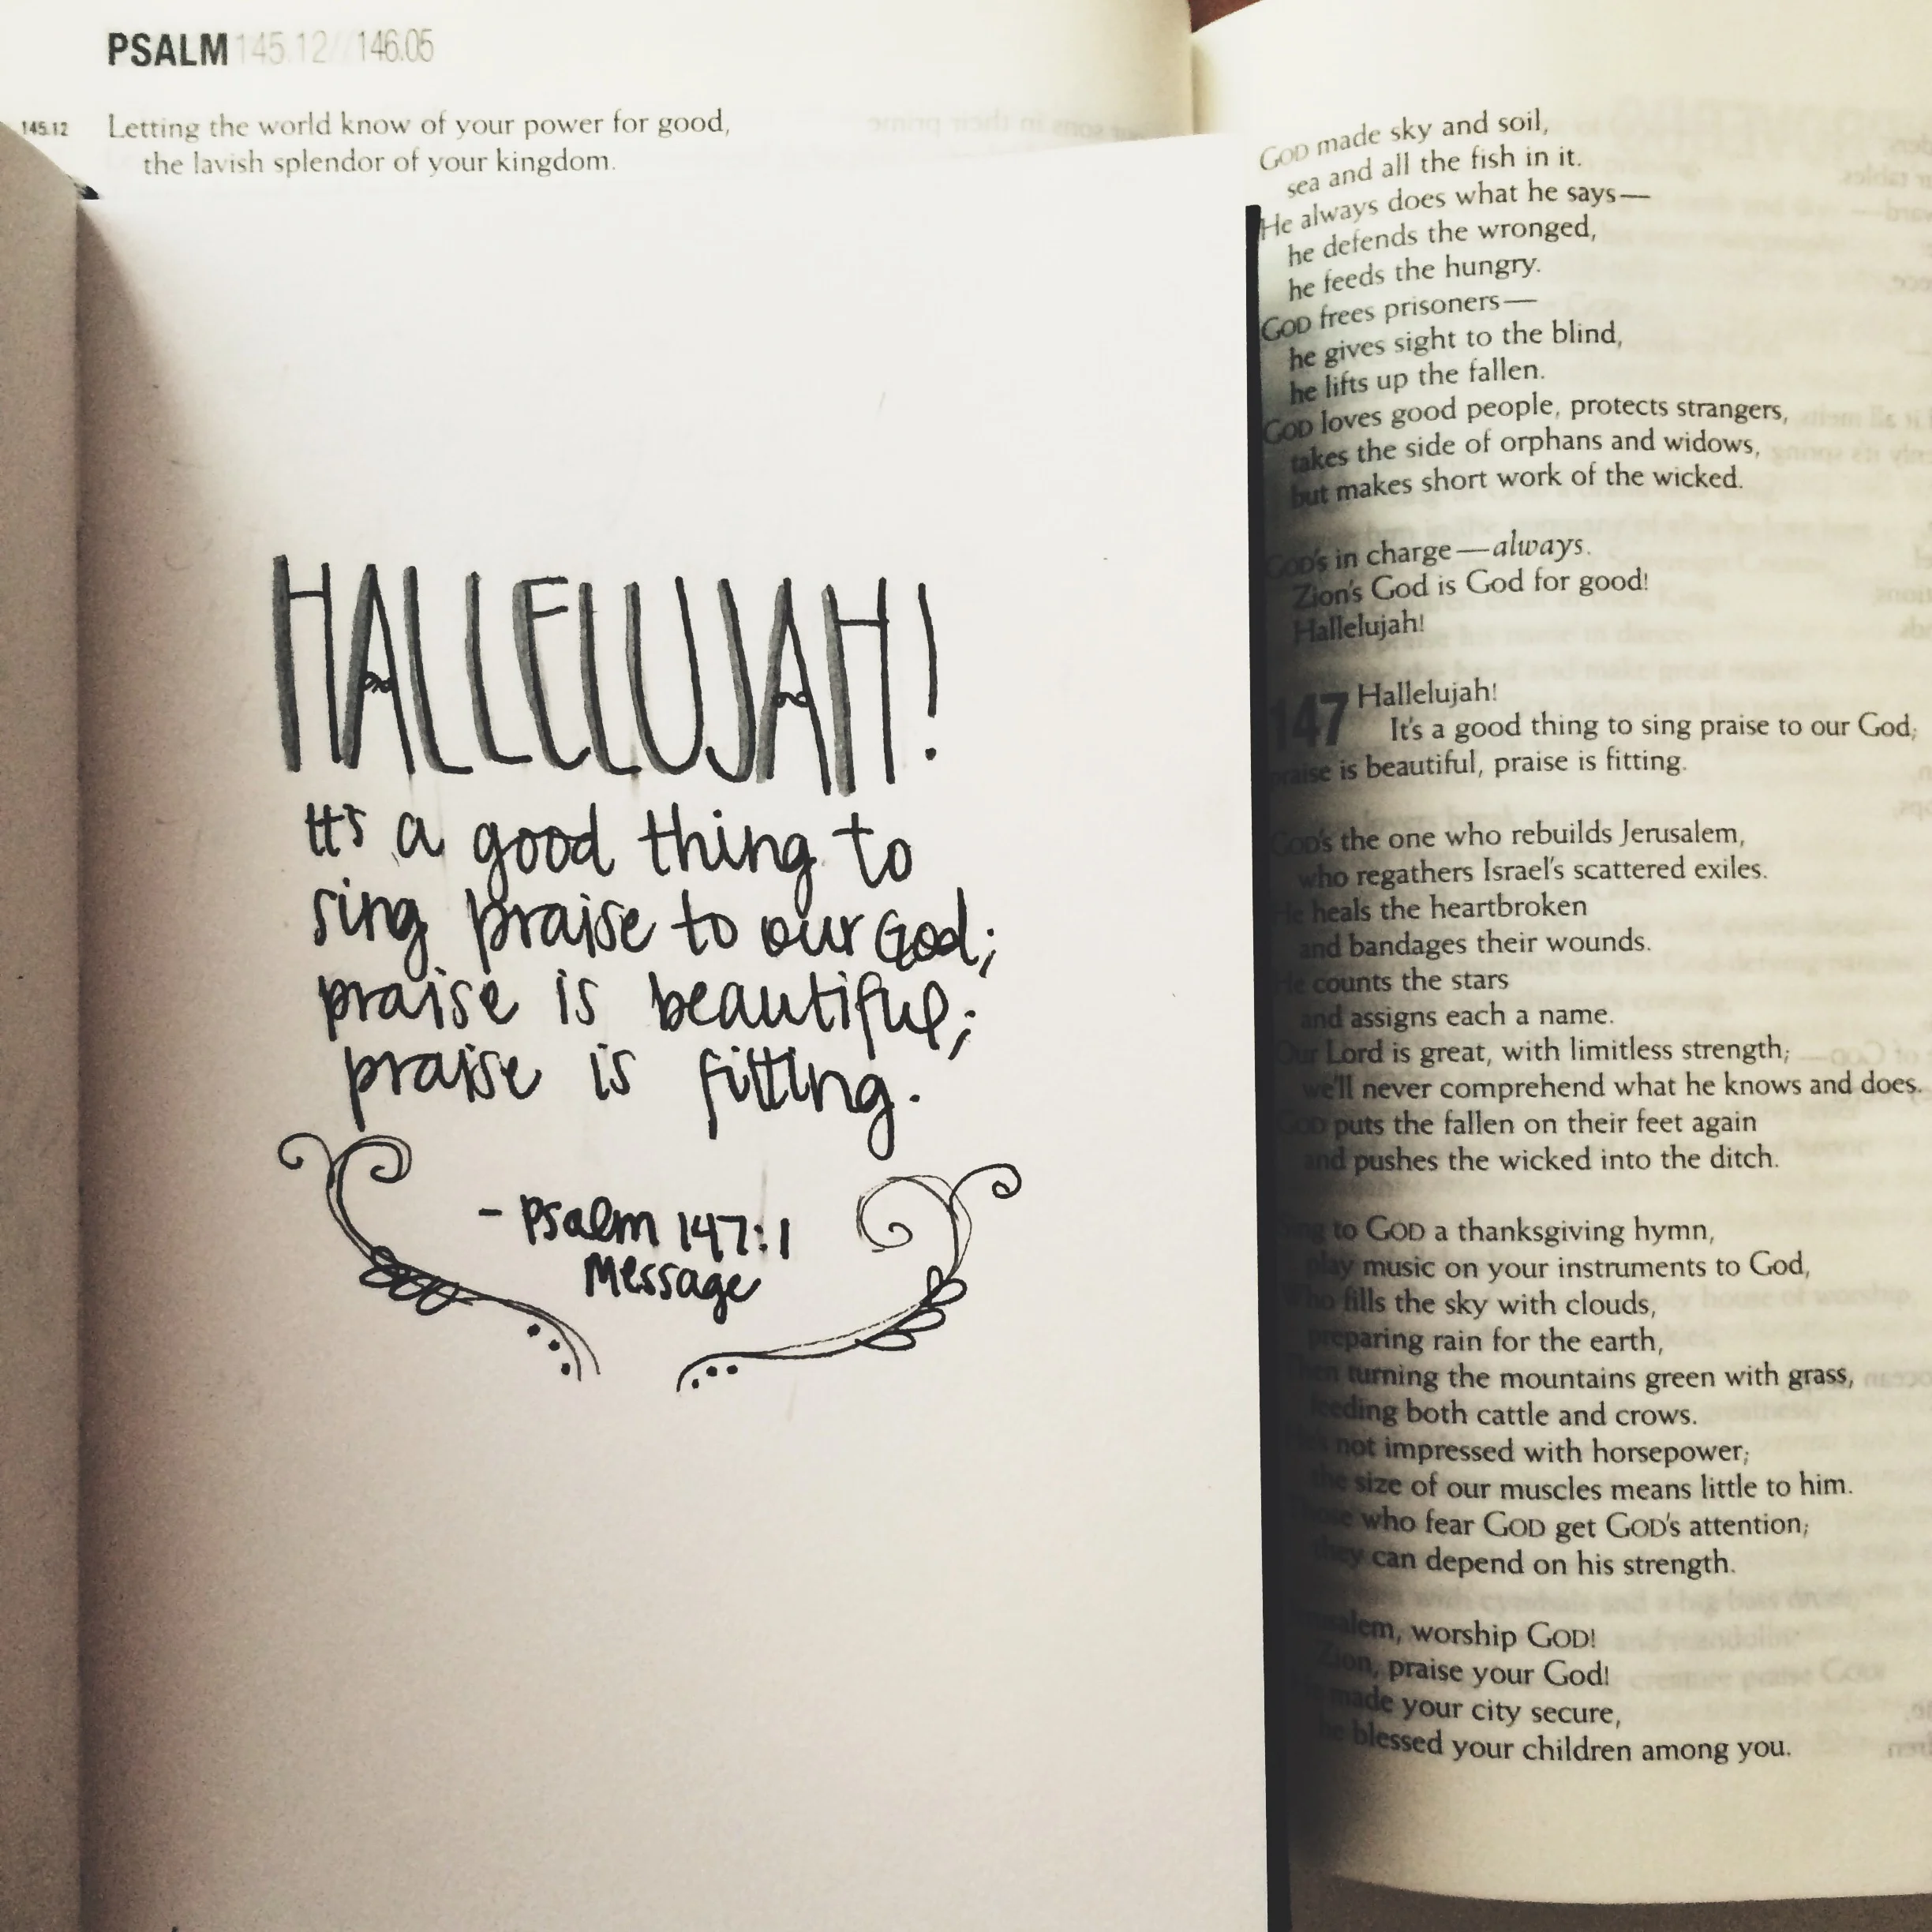 PSALM 145.12// 146.05
145.12 Letting the world know of your power for good,
the lavish splendor of your kingdom.
HALLELUJAH!
It's a good thing to
sing praise to our God;
praise is beautiful;
praise is fitting.
- Psalm 147:1
Message
GOD made sky and soil,
sea and all the fish in it.
He always does what he says—
he defends the wronged,
he feeds the hungry.
GOD frees prisoners—
he gives sight to the blind,
he lifts up the fallen.
GOD loves good people, protects strangers,
takes the side of orphans and widows,
but makes short work of the wicked.
GOD's in charge—always.
Zion's God is God for good!
Hallelujah!
147 Hallelujah!
It's a good thing to sing praise to our God;
praise is beautiful, praise is fitting.
GOD's the one who rebuilds Jerusalem,
who regathers Israel's scattered exiles.
He heals the heartbroken
and bandages their wounds.
He counts the stars
and assigns each a name.
Our Lord is great, with limitless strength;
we'll never comprehend what he knows and does.
GOD puts the fallen on their feet again
and pushes the wicked into the ditch.
to GOD a thanksgiving hymn,
play music on your instruments to God,
Who fills the sky with clouds,
preparing rain for the earth,
turning the mountains green with grass,
feeding both cattle and crows.
not impressed with horsepower;
the size of our muscles means little to him.
who fear GOD get GOD's attention;
they can depend on his strength.
worship GOD!
Zion, praise your God!
made your city secure,
he blessed your children among you.